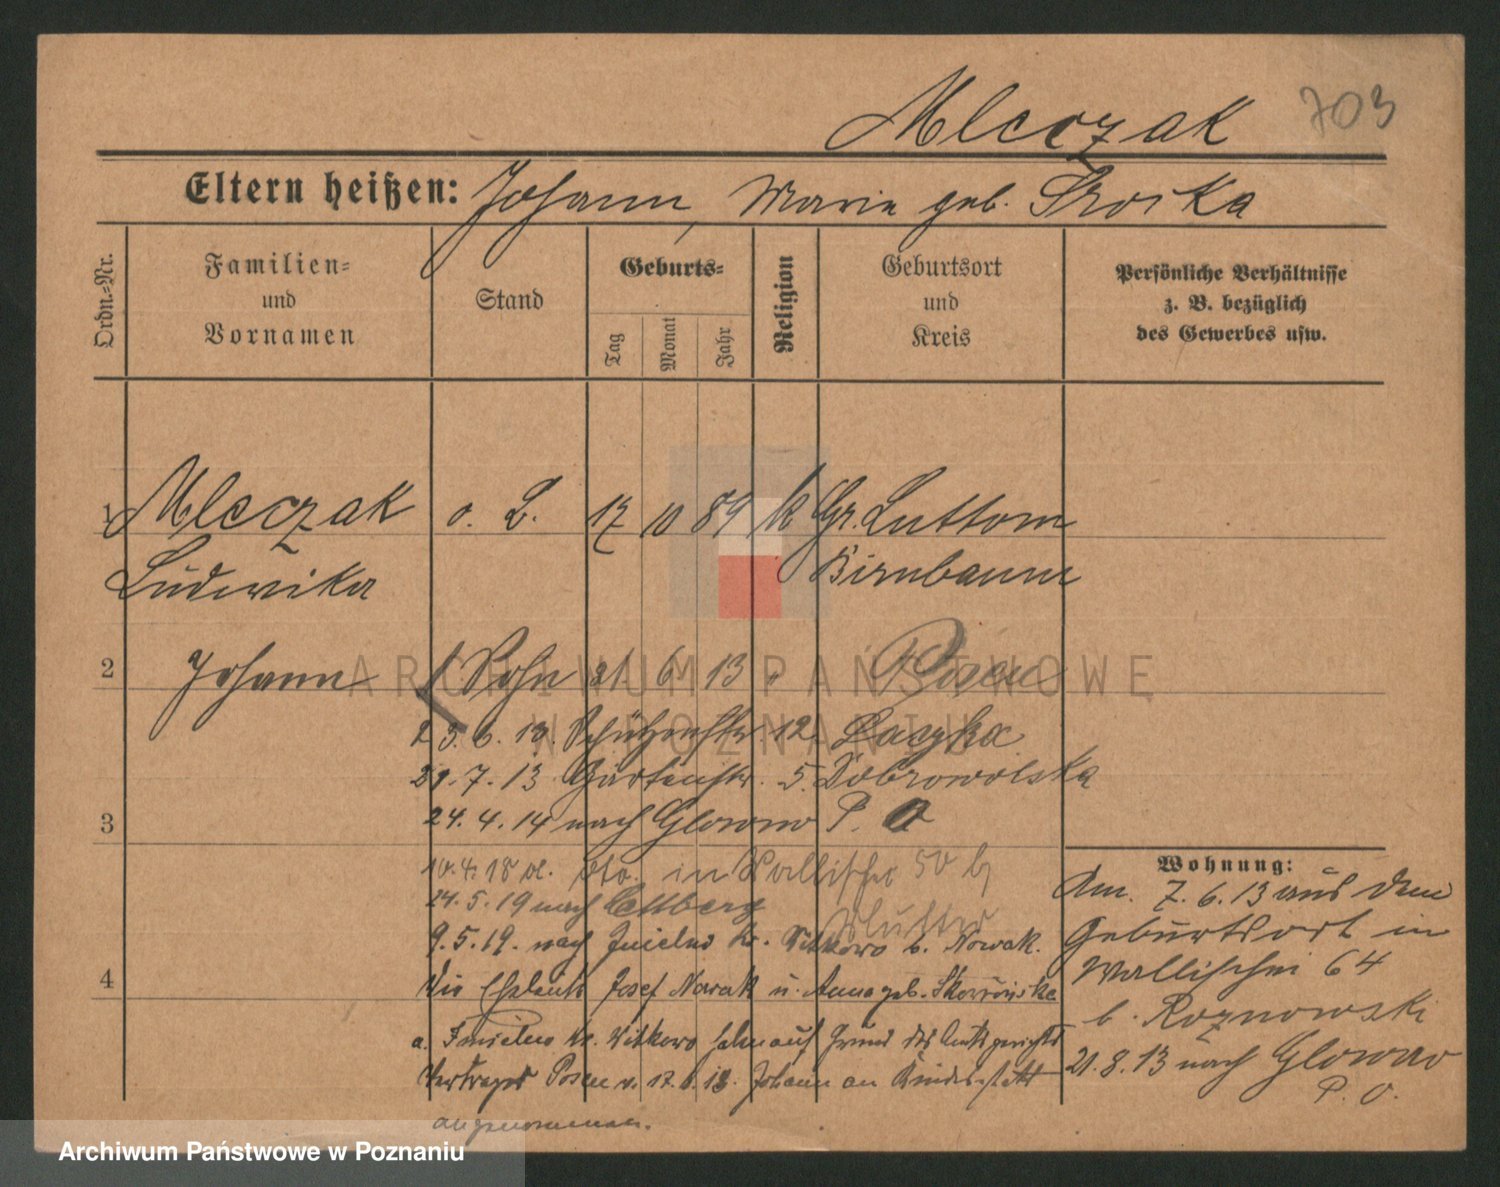 Mleczak 703
Eltern heißen: Johann, Marie geb. Skorka
Ordn.-Nr.
Familien-
und
Vornamen
Stand
Geburts-
Tag
Monat
Jahr
Religion
Geburtsort
und
Kreis
Persönliche Verhältnisse
z. B. bezüglich
des Gewerbes usw.
1 Mleczak o. B. 17 10 89 k Gr. Luttom
Ludwika Birnbaum
2 Johann Sohn 21. 6 13 " Posen
23. 6. 13. Schützenstr 12 Laczka
29. 7. 13 Gartenstr. 5. Dobrowolska
3 24. 4. 14 nach Glowno P. O
10. 4. 18 in Wallischei 50 b
Mutter
24. 5. 19 nach
9. 5. 19. nach Kr. Witkowo b. Nowak.
4 Die Eheleute Josef Nowak u. Anna geb.
a. Kr. Witkowo haben auf Grund des Amtsgerichts
Vertrages Posen v. 17. 6. 18. Johann an Kindesstatt
angenommen.
Wohnung:
Am. 7. 6. 13 aus dem
Geburtsort in
Wallischei 64
b. Roznowski
21. 8. 13 nach Glowno
P. O.
ARCHIWUM PAŃSTWOWE
W POZNANIU
Archiwum Państwowe w Poznaniu